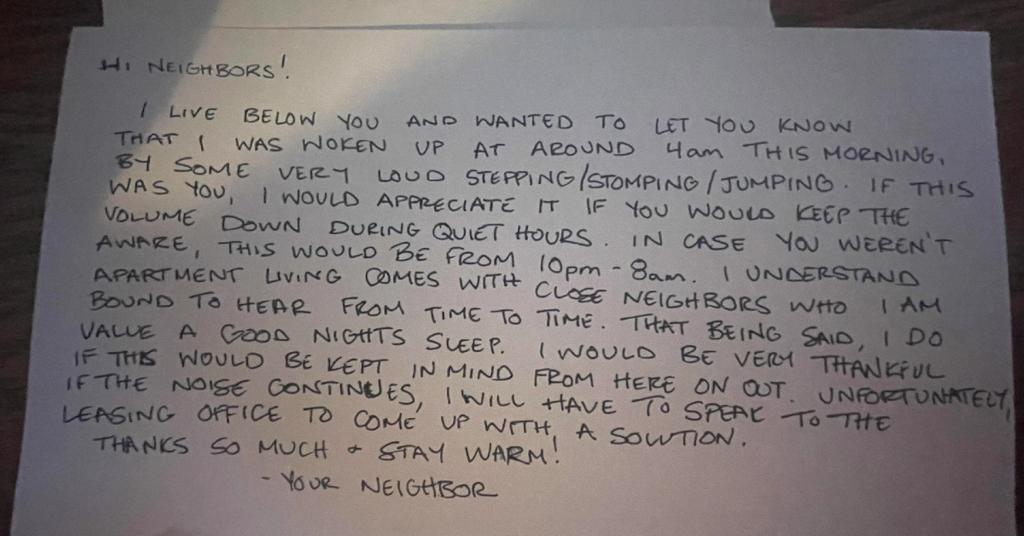 HI NEIGHBORS!
I LIVE BELOW YOU AND WANTED TO LET YOU KNOW
THAT I WAS WOKEN UP AT AROUND 4am THIS MORNING,
BY SOME VERY LOUD STEPPING/STOMPING/JUMPING. IF THIS
WAS YOU, I WOULD APPRECIATE IT IF YOU WOULD KEEP THE
VOLUME DOWN DURING QUIET HOURS. IN CASE YOU WEREN'T
AWARE, THIS WOULD BE FROM 10pm - 8am. I UNDERSTAND
APARTMENT LIVING COMES WITH CLOSE NEIGHBORS WHO I AM
BOUND TO HEAR FROM TIME TO TIME. THAT BEING SAID, I DO
VALUE A GOOD NIGHTS SLEEP. I WOULD BE VERY THANKFUL
IF THIS WOULD BE KEPT IN MIND FROM HERE ON OUT. UNFORTUNATELY,
IF THE NOISE CONTINUES, I WILL HAVE TO SPEAK TO THE
LEASING OFFICE TO COME UP WITH A SOLUTION.
THANKS SO MUCH & STAY WARM!
- YOUR NEIGHBOR